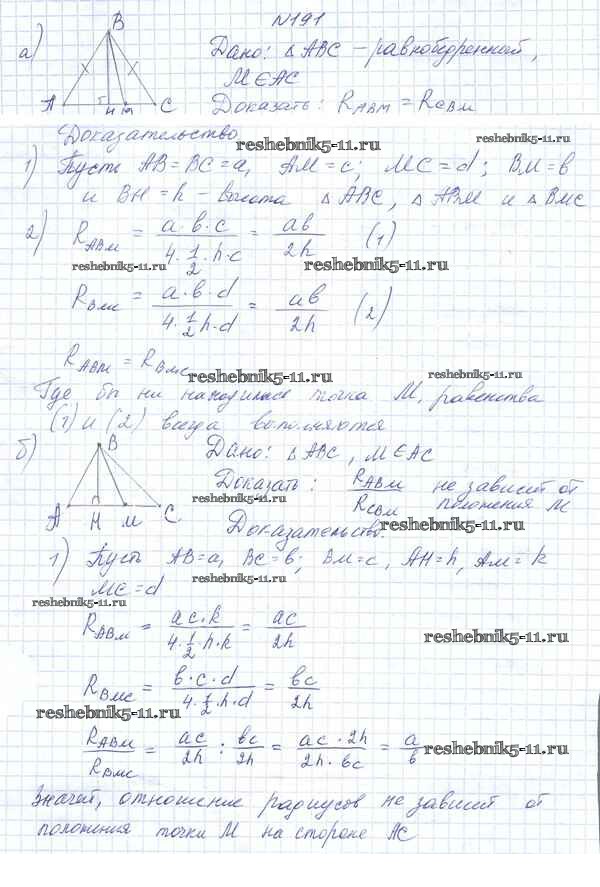 №191
а)
B
A H M C
Дано: △ABC – равнобедренный,
M∈AC
Доказать: R_ABM = R_CBM
Доказательство
reshebnik5-11.ru
reshebnik5-11.ru
1) Пусть AB=BC=a, AM=c; MC=d; BM=b
и BH=h – высота △ABC, △ABM и △BMC
2) R_ABM = a·b·c / 4·1/2·h·c = ab / 2h (1)
reshebnik5-11.ru
reshebnik5-11.ru
R_BMC = a·b·d / 4·1/2·h·d = ab / 2h (2)
R_ABM = R_BMC
reshebnik5-11.ru
reshebnik5-11.ru
Где бы ни находилась точка M, равенства
(1) и (2) всегда выполняются
б)
B
A H M C
Дано: △ABC, M∈AC
Доказать: R_ABM / R_CBM не зависит от
положения M
reshebnik5-11.ru
reshebnik5-11.ru
Доказательство:
1) Пусть AB=a, BC=b; BM=c, AH=h, AM=k
MC=d
reshebnik5-11.ru
reshebnik5-11.ru
R_ABM = ac·k / 4·1/2·h·k = ac / 2h
reshebnik5-11.ru
R_BMC = b·c·d / 4·1/2·h·d = bc / 2h
reshebnik5-11.ru
R_ABM / R_BMC = ac / 2h : bc / 2h = ac·2h / 2h·bc = a / b
reshebnik5-11.ru
Значит, отношение радиусов не зависит от
положения точки M на стороне AC